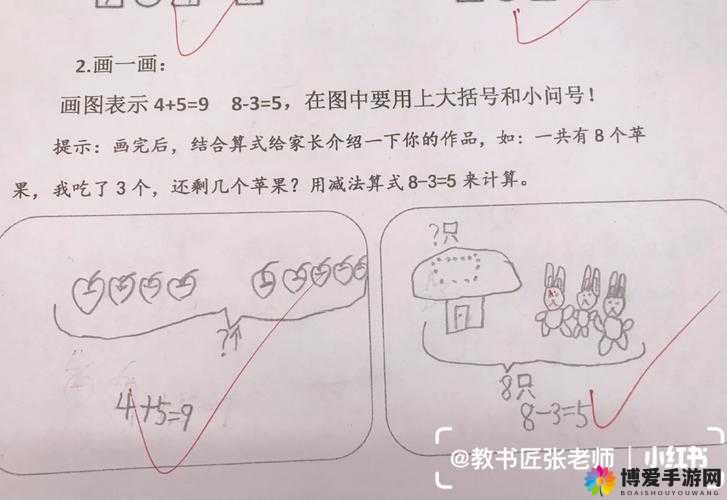 2.画一画：
画图表示 4+5=9 8-3=5，在图中要用上大括号和小问号！
提示：画完后，结合算式给家长介绍一下你的作品，如：一共有 8 个苹
果，我吃了 3 个，还剩几个苹果？用减法算式 8-3=5 来计算。
?个
4+5=9
?只
8只
8-3=5
@教书匠张老师 | 小红书
博爱手游网
BOAISHOUYOUWANG